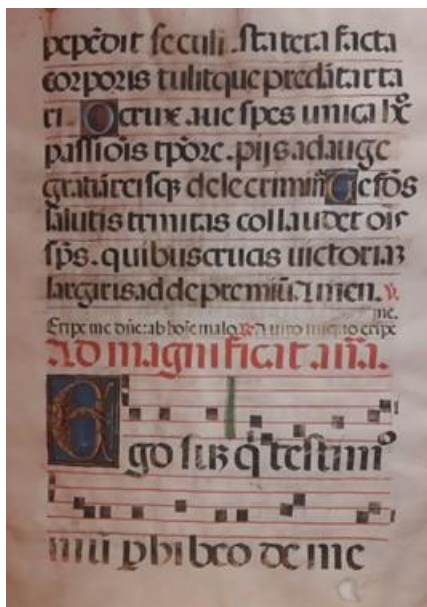 pepēdit seculi. statera facta
corporis tulitque preditarta
ri. O crux aue spes unica hōc
passiōis tpōre. pijs adauge
gratiā reisqꝫ dele crimīn̄ Te fōs
salutis trinitas collaudet oīs
sp̄s. quibus crucis uictoriaꝫ
largiris adde premiū. Amen. ℣.
Eripe me dn̄e: ab hoīe malo. ℟. A uiro iniquo eripe me.
Ad magnificat añā.
Ego suꝫ q̄ testimo
niū phibeo de me